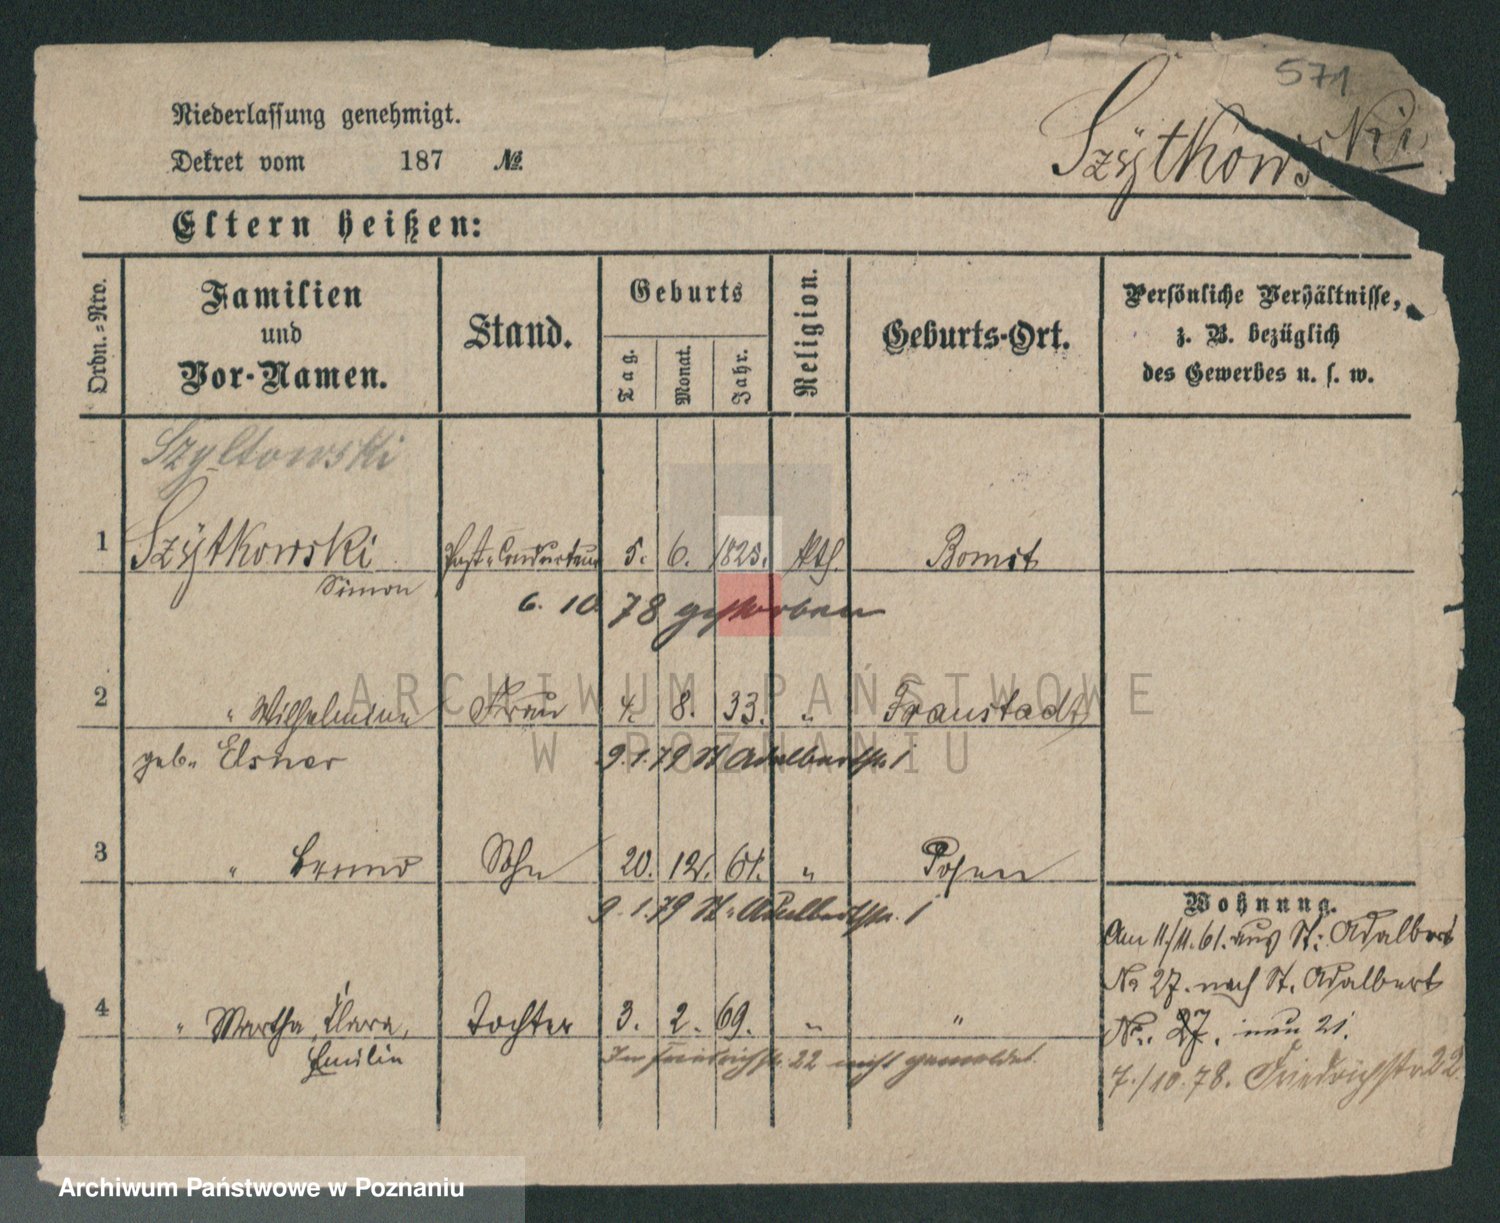 571
Niederlassung genehmigt.
Szÿtkowski
Dekret vom 187 No.
Eltern heißen:
Ordn.=Nro.
Familien
und
Vor-Namen.
Stand.
Geburts
Tag.
Monat.
Jahr.
Religion.
Geburts-Ort.
Persönliche Verhältnisse,
z. B. bezüglich
des Gewerbes u. s. w.
Szyltowski
1 Szÿtkowski Post-Conducteur 5. 6. 1825. kth. Bomst
Simon
6. 10 78 gestorben
2 " Wilhelmine Frau 4. 8. 33. " Fraustadt
geb. Elsner
9.1.79 St Adalbertstr. 1
3 " Bruno Sohn 20. 12. 61. " Posen
9.1.79 St. Adalbertstr. 1
4 " Martha, Clara, Tochter 3. 2. 69. " "
Emilie
Friedrichstr. 22 nicht gemeldet
Wohnung.
Am 11./11. 61. aus St. Adalbert
No 27. nach St. Adalbert
No. 27. nun 21.
7./10.78. Friedrichstr 22.
ARCHIWUM PAŃSTWOWE
W POZNANIU
Archiwum Państwowe w Poznaniu